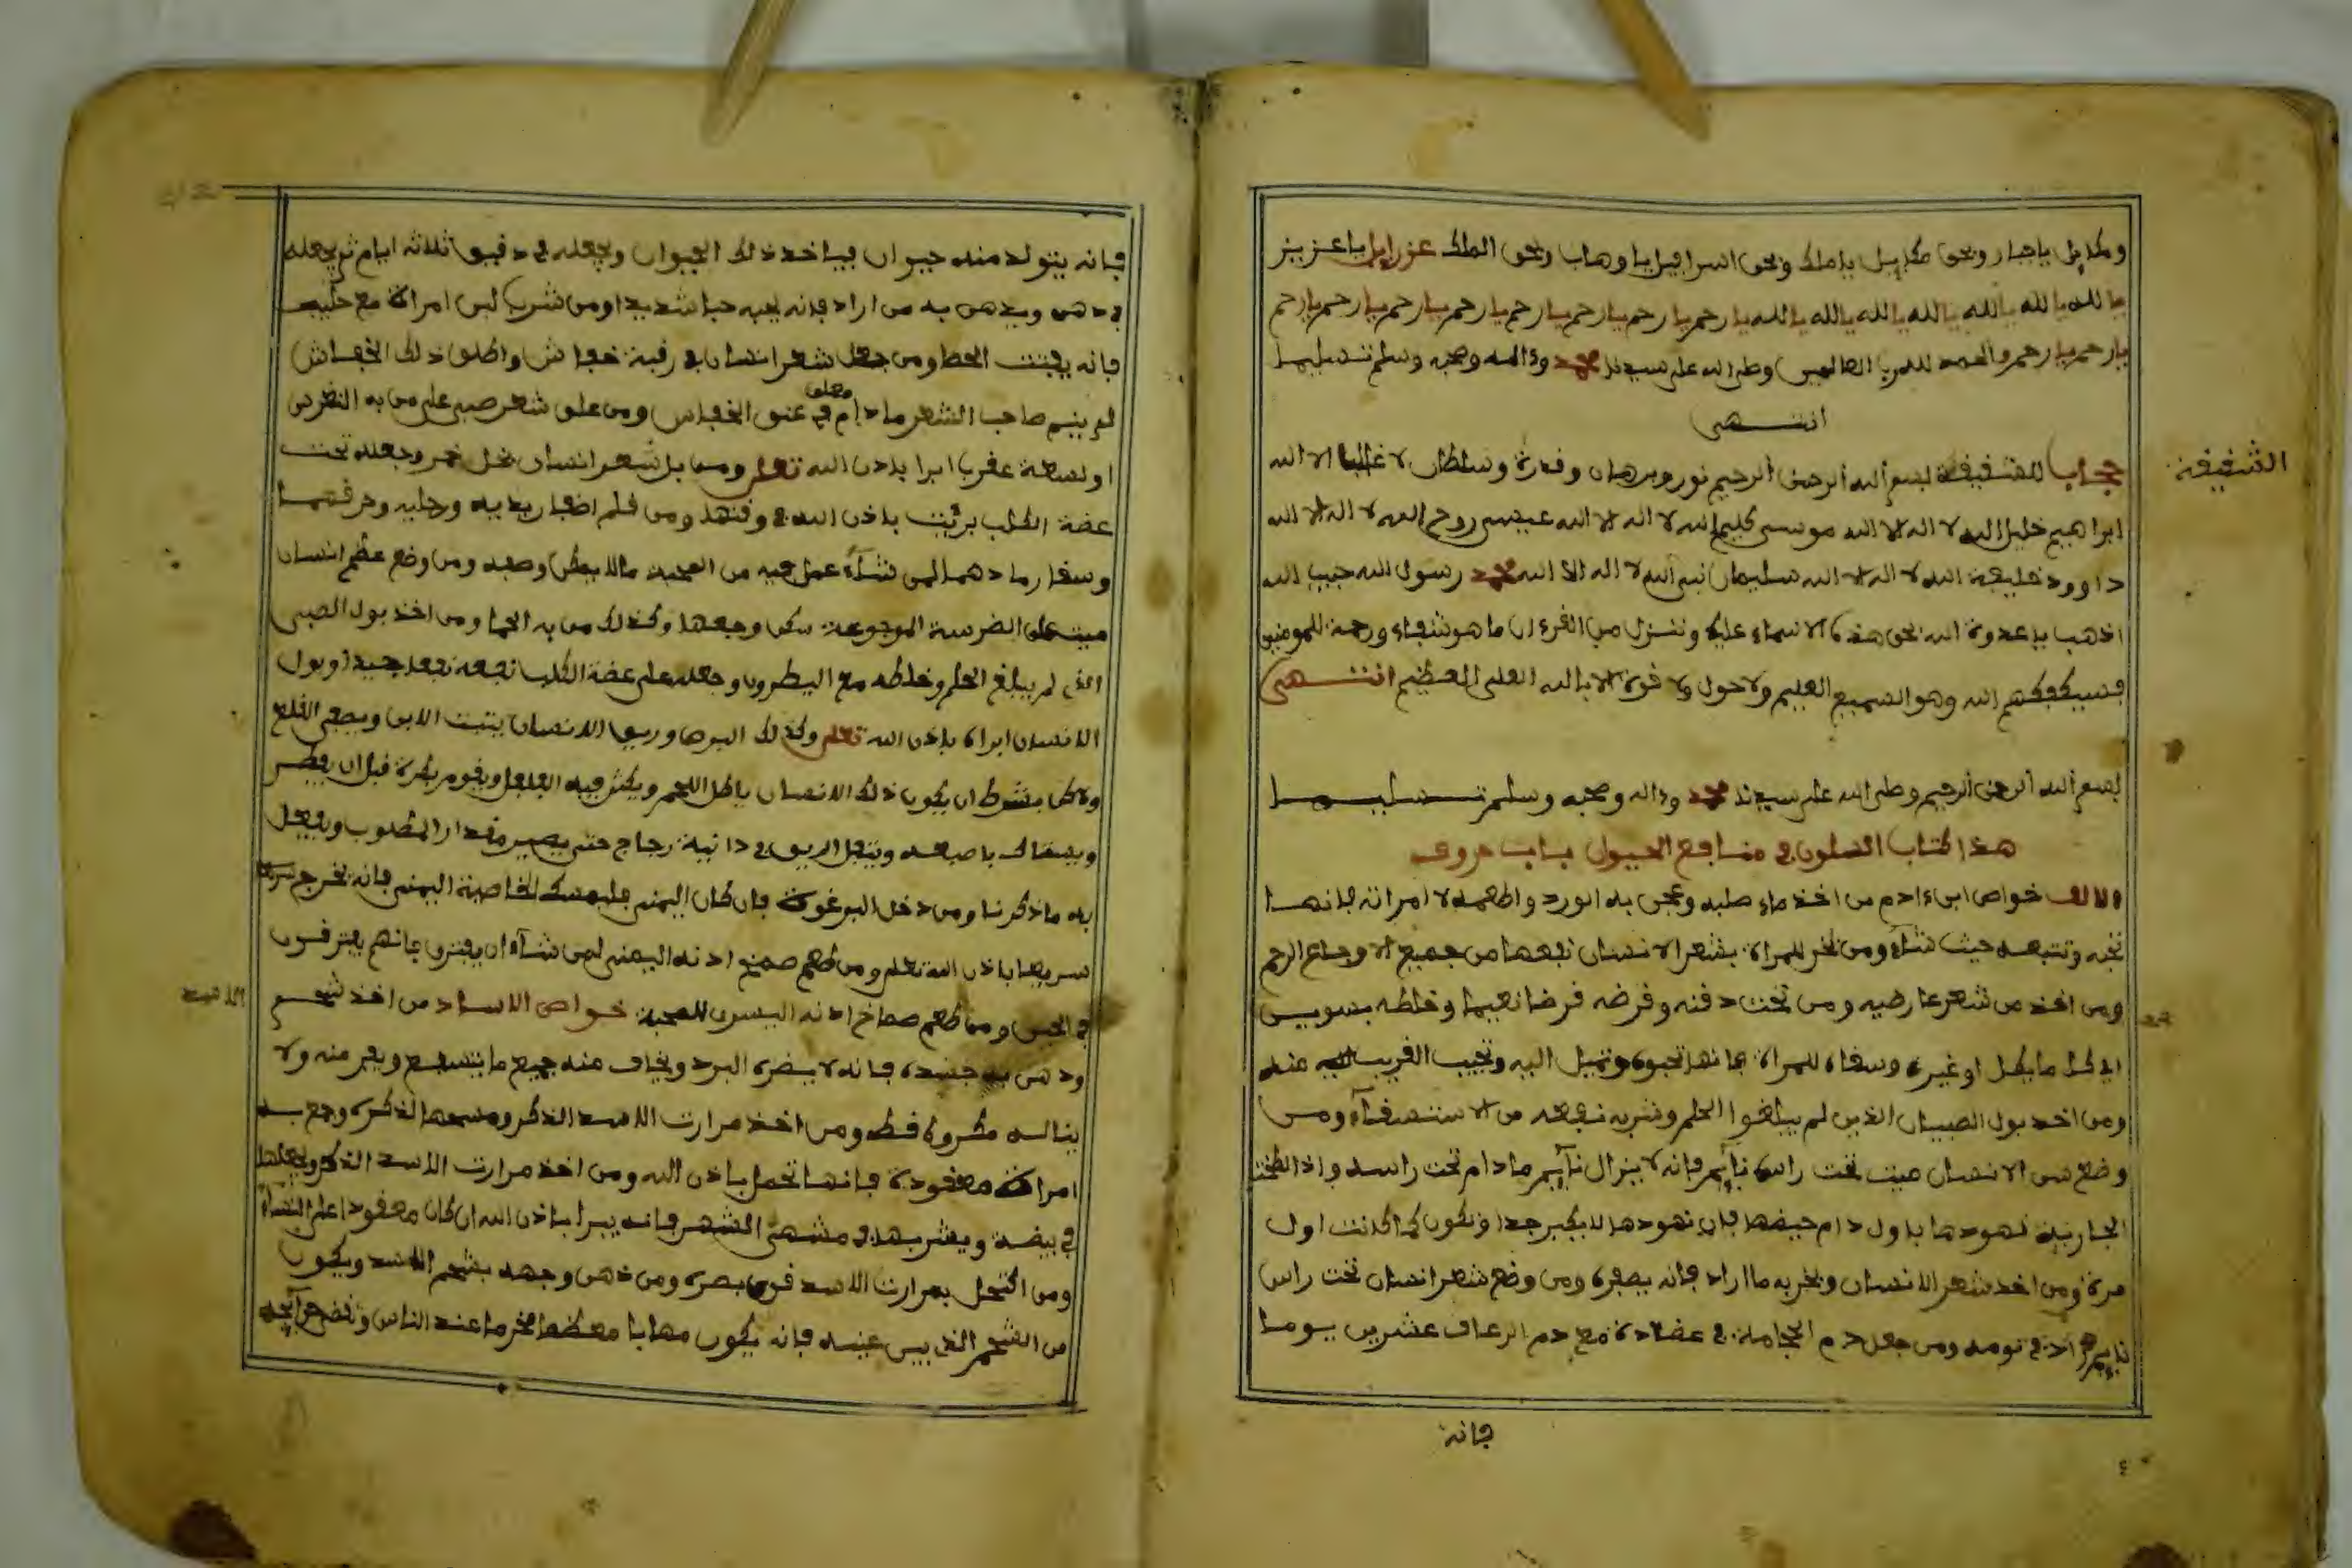 ياجبار وبحق ياملك وبحق اسرافيل ياوهاب وبحق الملك عزرايل ياعزيز
يا الله يا الله يا الله يا الله يا الله يا الله يا رحيم يا رحيم يا رحيم يا رحيم يا رحيم يا رحيم يا رحيم
يا رحيم يا رحيم والحمد لله رب العالمين وصلى الله على سيدنا محمد وءاله وصحبه وسلم تسليما
انتهى
الشقيقة
حجاب للشقيقة بسم الله الرحمن الرحيم نور وبرهان وقدرة وسلطان لا غالب الا الله
ابراهيم خليل الله لا اله الا الله موسى كليم الله لا اله الا الله عيسى روح الله لا اله الا الله
داوود خليفة الله لا اله الا الله سليمان نبي الله لا اله الا الله محمد رسول الله حبيب الله
اذهب ياعدوة الله بحق هذه الاسماء عليك وننزل من القرءان ما هو شفاء ورحمة للمومنين
فسيكفيكهم الله وهو السميع العليم ولا حول ولا قوة الا بالله العلي العظيم انتهى
بسم الله الرحمن الرحيم وصلى الله على سيدنا محمد وءاله وصحبه وسلم تسليما
هذا كتاب في منافع الحيوان باب
الالف خواص ابن ءادم من اخذ ماء صلبه وعجن به الورد واطعمه لامراته فانها
تحبه وتتبعه حيث شاء ومن بخر للمراة بشعر الانسان نفعها من جميع الاوجاع الرحم
ومن اخذ من شعر عارضيه ومن تحت دقنه وقرضه قرضا نعيما وخلطه بسويس
او غيره وسقاه للمراة فانها تحبوه وتميل اليه وتجيب القريب عنه
ومن اخذ بول الصبيان الذين لم يبلغوا الحلم وشربه نفعه من الاستسقاء ومن
وضع سن الانسان ميت تحت راس نايم فانه لا يزال نايم مادام تحت راسه واذا لطخت
الجارية نهودها باول دام حيضها فان نهودها لا يكبر جدا وتكون كما كانت اول
مرة ومن اخذ شعر الانسان وبخر به ما اراد فانه يصفره ومن وضع شعر انسان تحت راس
نايم في نومه ومن جعل دم الحجامة في مع دم الرعاف عشرين يوما
فانه
فانه يتولد منه حيوان فياخذ ذلك الحيوان ويجعله في دقيق ثلاثة ايام ثم يجعله
في دهن ويدهن به من اراد فانه يحبه حبا شديدا ومن شرب لبن امراة مع حليب
فانه يفتت الحصا ومن جعل شعر انسان في رقبة خفاش واطلق ذلك الخفاش
لم ينم صاحب الشعر مادام معلق في عنق الخفاش ومن علق شعر صبي على من به النقرس
او لسعة عقرب ابرا باذن الله تعلى بل شعر انسان بخل خمر وجعله تحت
عضة الكلب بريت باذن الله في وقتها ومن قلم اضفار يديه ورجليه وحرقهما
وسقا رمادهما لمن شاء عمل فيه من المحبة مالا يمكن وصفه ومن وضع عظم انسان
ميت على الضرسة الموجوعة سكن وجعها وكذلك من به الحما ومن اخذ بول الصبي
الذي لم يبلغ الحلم وخلطه مع اليطرون وجعله على عضة الكلب نفعه نفعا جيدا وبول
الانسان ابراه باذن الله تعلى وكذلك البرص وريق الانسان
ولاكن بشرط ان يكون ذلك الانسان ياكل اللحم ويكثر فيه الفلفل ويقوم بكرة قبل ان يفطر
باصبعه ويتفل الريق في ءانية زجاج حتى يصير مقدار المطلوب ويفعل
به ماذكرنا ومن دخل البرغوث فان كان اليمنى فليمسك الخاصية اليمنى فانه يخرج
سريعا باذن الله تعلى ومن طعم صميخ اذنه اليمنى لمن شاء ان يفترق فانهم يفترقون
في الحين وما طعم صماخ اذنه اليسرى للمحبة خواص الاسد من اخذ شحم
الاسد
ودهن به جسده فانه لا يضره البرد ويخاف منه جميع ما يسمع ويفر منه ولا
يناله مكروه قط ومن اخذ مرارت الاسد الذكر الذكر وجمع به
امراة معقودة فانها تحمل باذن الله ومن اخذ مرارت الاسد الذكر
في بيضة ويشربها في الشهر فانه يبرا باذن الله ان كان معقودا على النساء
ومن اكتحل بمرارت الاسد قوى بصره ومن دهن وجهه بشحم الاسد ويكون
من الشحم الذي بين عينيه فانه يكون مهابا معظما مخرما عند الناس وتقضى